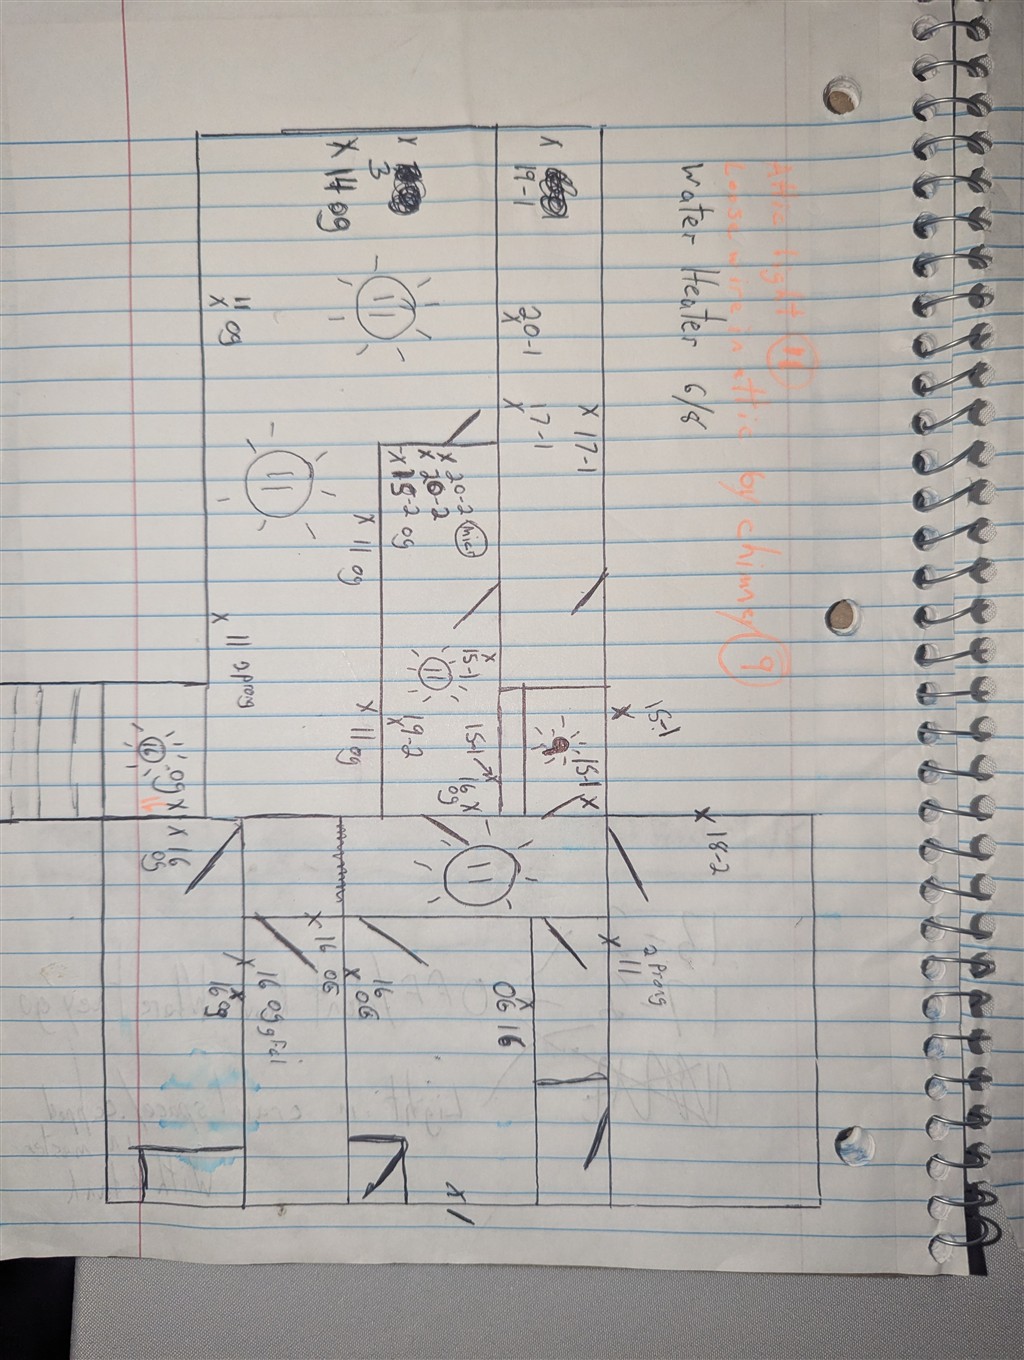 Attic light 11
Loose wire in attic by chimney 9
Water Heater 6/8
X 17-1
X 19-1
20-1 X
X 17-1
15-1 X
15-1 X
X 18-2
X 3
X 14 og
11
X 20-2
X 20-2
X 15-2 og
micr
X 15-1
11
15-1
16 X og
X 19-2
11 X og
11
X 11 og
X 11 og
X 11 2 prong
11
og X 11
X 16 og
11
2 prong
X 11
X 16 OG
16 X OG
X OG 16
X 16 og gfci
X 16 og
X 1